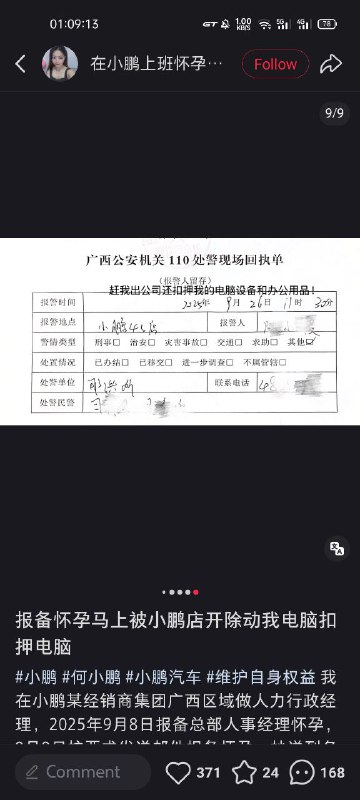 01:09:13
1.00 KB/S 5G 4G 78
在小鹏上班怀孕…
Follow
9/9
广西公安机关 110 处警现场回执单
(报警人留存)
赶我出公司还扣押我的电脑设备和办公用品!
报警时间 2025年 9月 26日 11时 30分
报警地点 小鹏4S店 报警人
警情类型 刑事☐ 治安☐ 灾害事故☐ 交通☐ 求助☐ 其他☑
处置情况 已办结☐ 已移交☐ 进一步调查☐ 不属管辖☐
处警单位 联系电话
处警民警
报备怀孕马上被小鹏店开除动我电脑扣
押电脑
#小鹏 #何小鹏 #小鹏汽车 #维护自身权益 我
在小鹏某经销商集团广西区域做人力行政经
理，2025年9月8日报备总部人事经理怀孕，
Comment
371
24
168